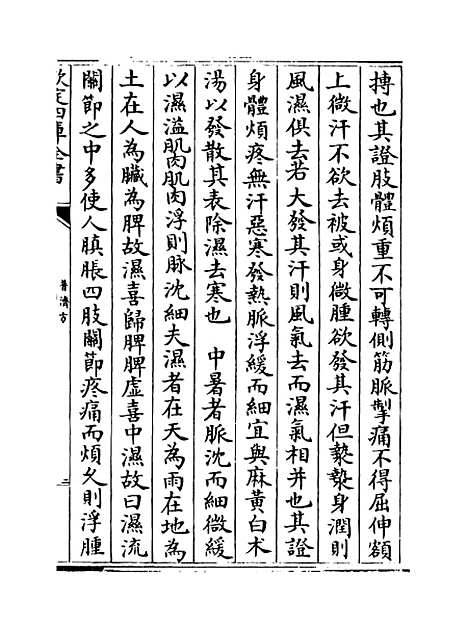 搏也其證肢體煩重不可轉側筋脈掣痛不得屈伸額
上微汗不欲去被或身微腫欲發其汗但漐漐身潤則
風濕俱去若大發其汗則風氣去而濕氣相并也其證
身體煩疼無汗惡寒發熱脈浮緩而細宜與麻黃白术
湯以發散其表除濕去寒也　中暑者脈沈而細微緩
以濕溢肌肉肌肉浮則脈沈細夫濕者在天為雨在地為
土在人為臟為脾故濕喜歸脾脾虛喜中濕故曰濕流
關節之中多使人䐜脹四肢關節疼痛而煩久則浮腫
欽定四庫全書
普濟方